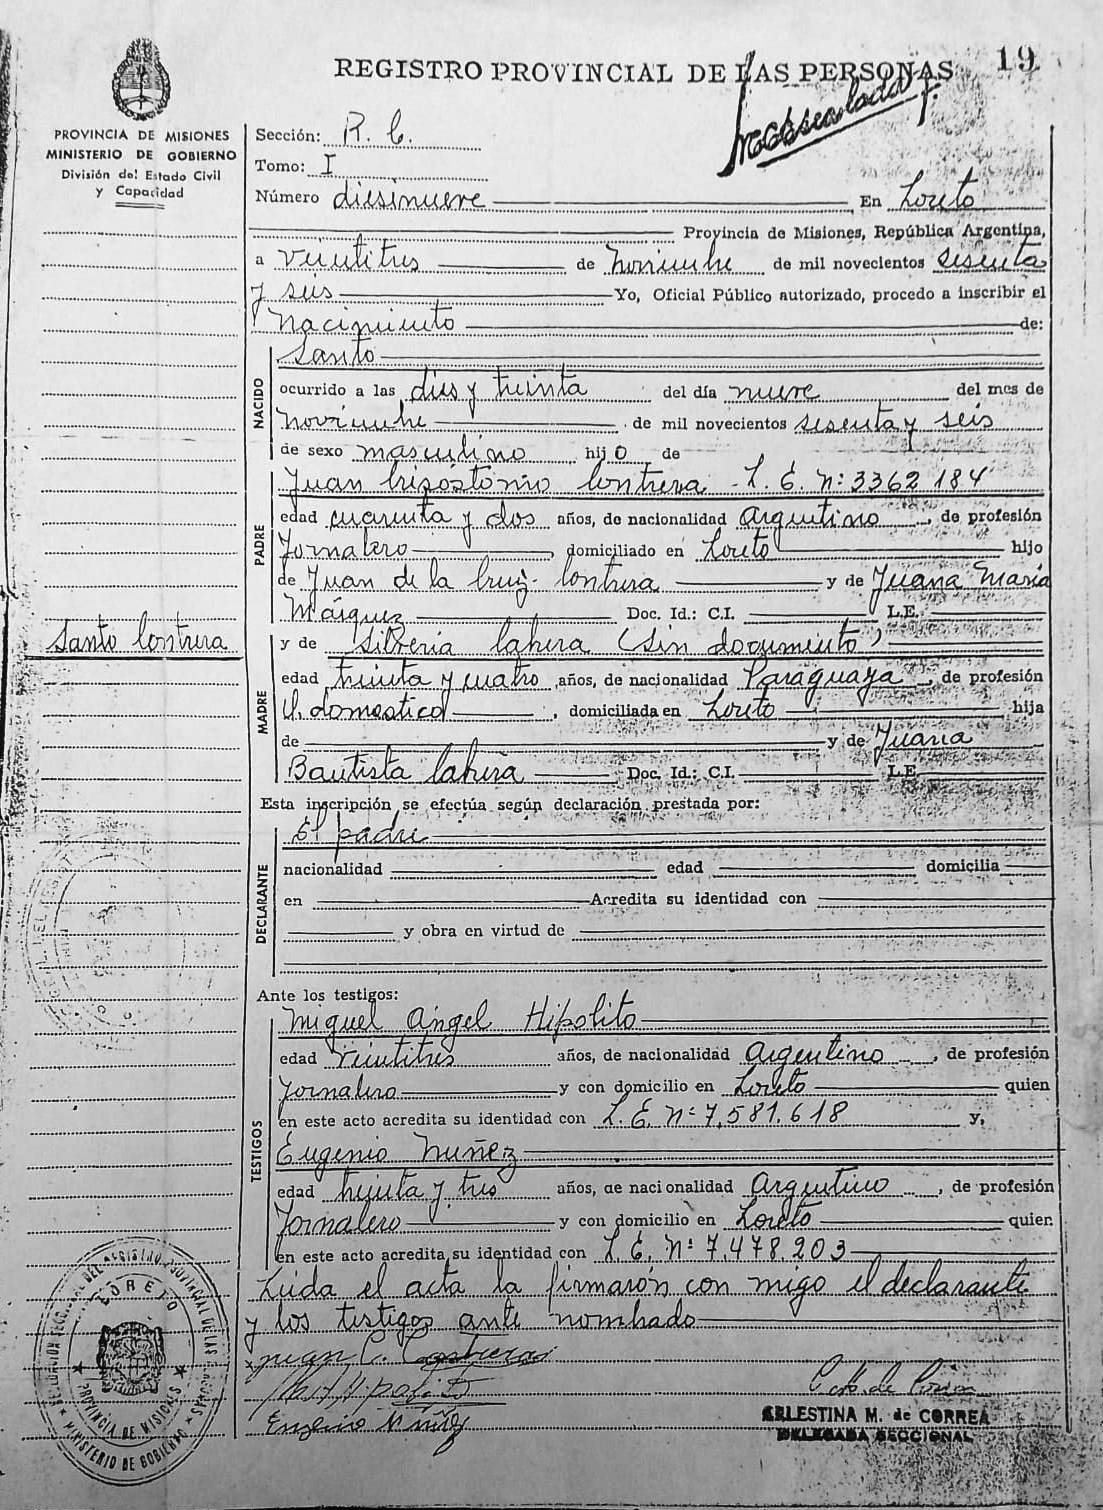 19
REGISTRO PROVINCIAL DE LAS PERSONAS
PROVINCIA DE MISIONES
MINISTERIO DE GOBIERNO
División del Estado Civil
y Capacidad
Sección: R. C.
Tomo: I
Número diesinueve En Loreto
Provincia de Misiones, República Argentina,
a veintitres de Noviembre de mil novecientos sesenta
y seis Yo, Oficial Público autorizado, procedo a inscribir el
Nacimiento de:
Santo
NACIDO
ocurrido a las dies y treinta del día nueve del mes de
Noviembre de mil novecientos sesenta y seis
de sexo masculino hijo de
Juan Crisóstomo Contrera - L. E. Nº 3362184
PADRE
edad cuarenta y dos años, de nacionalidad Argentino, de profesión
Jornalero, domiciliado en Loreto hijo
de Juan de la Cruz Contrera y de Juana Maria
Márquez Doc. Id.: C.I. L.E.
Santo Contrera
y de Silveria Cabrera (sin documento)
MADRE
edad treinta y cuatro años, de nacionalidad Paraguaya, de profesión
Q. domestico, domiciliada en Loreto hija
de y de Juana
Bautista Cabrera Doc. Id.: C.I. L.E.
Esta inscripción se efectúa según declaración prestada por:
El padre
DECLARANTE
nacionalidad edad domicilia
en Acredita su identidad con
y obra en virtud de
Ante los testigos:
Miguel Angel Hipolito
TESTIGOS
edad veintitres años, de nacionalidad Argentino, de profesión
Jornalero y con domicilio en Loreto quien
en este acto acredita su identidad con L. E. Nº 7.581.618 y,
Eugenio Nuñez
edad treinta y tres años, de nacionalidad Argentino, de profesión
Jornalero y con domicilio en Loreto quien
en este acto acredita su identidad con L. E. Nº 7.478.203
Leida el acta la firmarón con migo el declarante
y los testigos ante nombrado
Juan C. Contreras
Eugenio Nuñez
CELESTINA M. de CORREA
DELEGADA SECCIONAL
LORETO
PROVINCIA DE MISIONES
MINISTERIO DE GOBIERNO